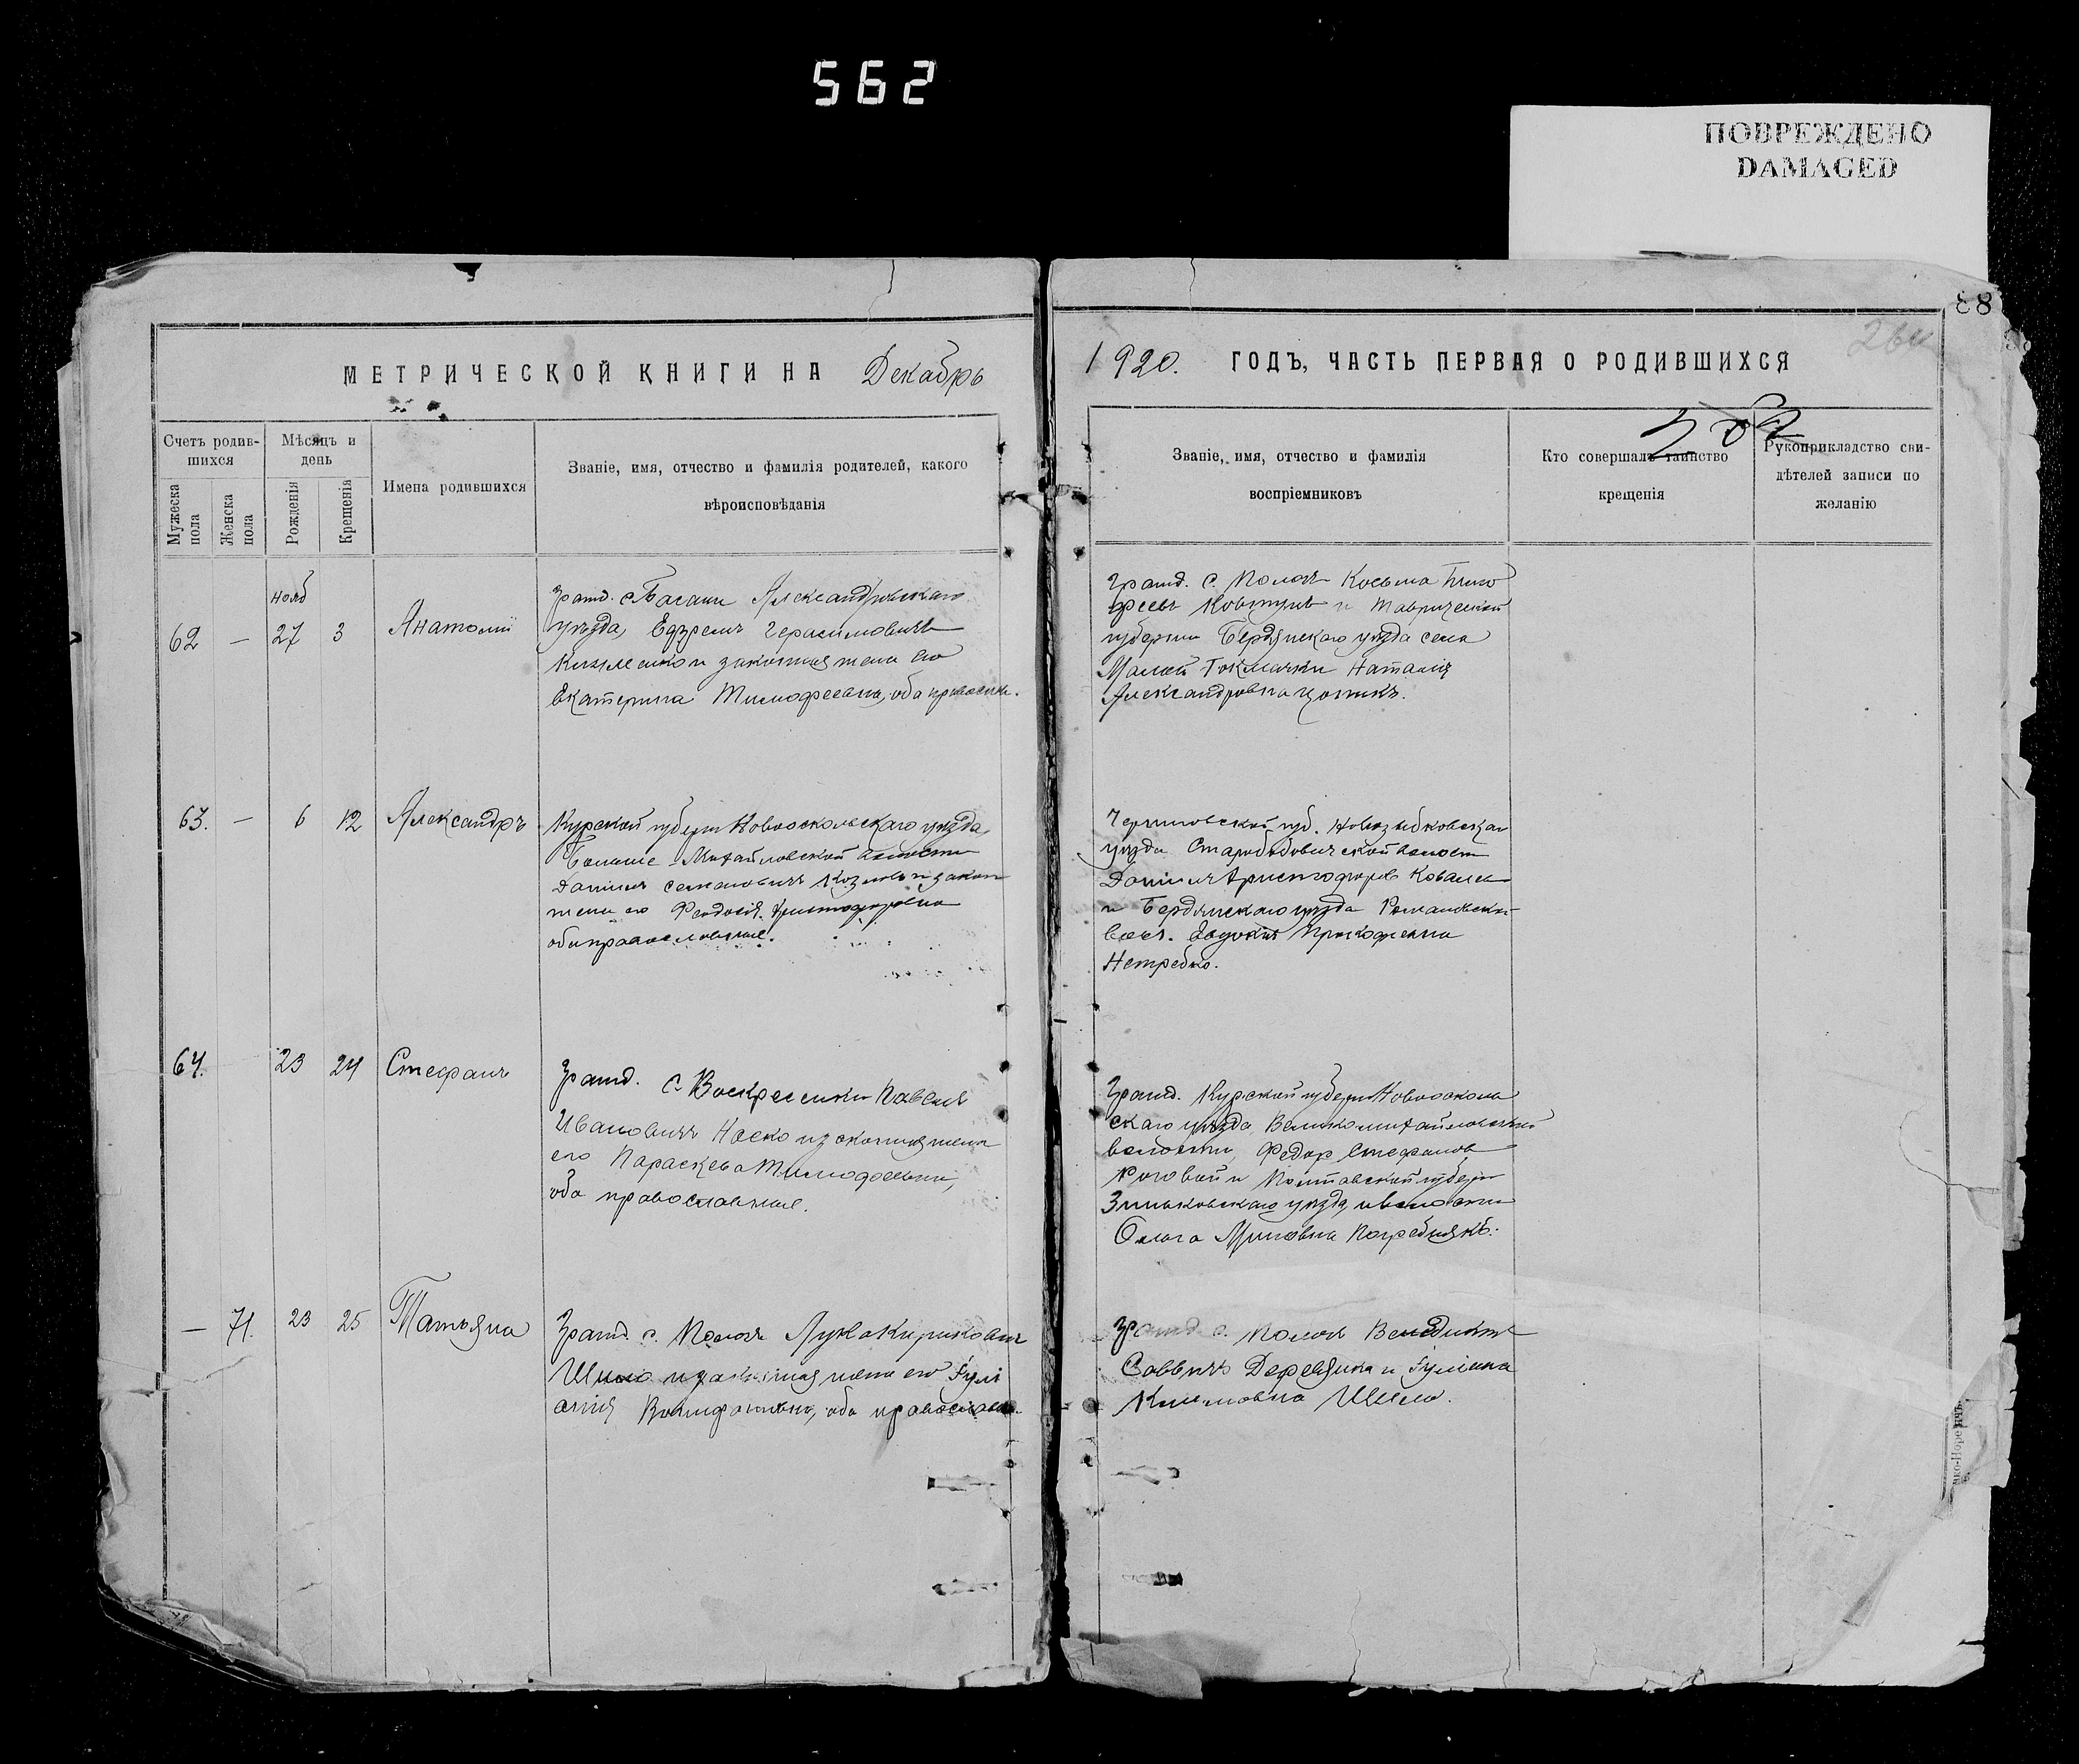 562
ПОВРЕЖДЕНО
DAMAGED
88
МЕТРИЧЕСКОЙ КНИГИ НА Декабрь
1920. ГОДЪ, ЧАСТЬ ПЕРВАЯ О РОДИВШИХСЯ
Счетъ родив-
шихся
Мужеска
пола
Женска
пола
Мѣсяцъ и
день
Рожденія
Крещенія
Имена родившихся
Званіе, имя, отчество и фамилія родителей, какого
вѣроисповѣданія
Званіе, имя, отчество и фамилія
воспріемниковъ
Кто совершалъ таинство
крещенія
Рукоприкладство сви-
дѣтелей записи по
желанію
нояб
62 — 27 3 Анатолій
гражд. с. Басани Александровскаго
уѣзда, Герасимовичъ
и законная жена его
Екатерина Тимофеевна, оба правосл.
гражд. с. Пологъ Косьма Тимо
феевъ Ковтунъ и Таврической
губерніи Бердянскаго уѣзда села
Малой Токмачки Наталія
Александровна
63. — 6 12 Александръ
Курской губерн Новооскольскаго уѣзда,
Больше-Михайловской волости
Даніилъ Семеновичъ Козловъ и закон
жена его Феодосія Христофоровна
оба православные.
Черниговской губ. Новозыбковскаго
уѣзда Старобобовичской волост
Даніилъ Христофоровъ Ковалев
и Бердянскаго уѣзда Романовской
волос. Евдокія Прокофіевна
Нетребко.
64. 23 24 Стефанъ
Гражд. с. Воскресенки Павелъ
Ивановичъ Носко и законная жена
его Параскева Тимофеевна,
оба православные.
Гражд. Курской губерн Новооскольс
скаго уѣзда, Великомихайловской
волости, Федор Стефанов
Роговой и Полтавской губерн
Зиньковскаго уѣзда и волости
Ольга Миновна Погребнякъ.
— 71. 23 25 Татьяна
Гражд. с. Пологъ Лука Кириковичъ
Шило и законная жена его Іулі
анія, оба православн.
Гражд. с. Пологъ Венедиктъ
Саввичъ Деревянка и Іуліана
Климовна Шило.